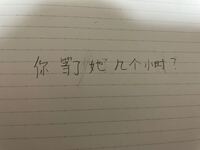 你等了她几个小时？